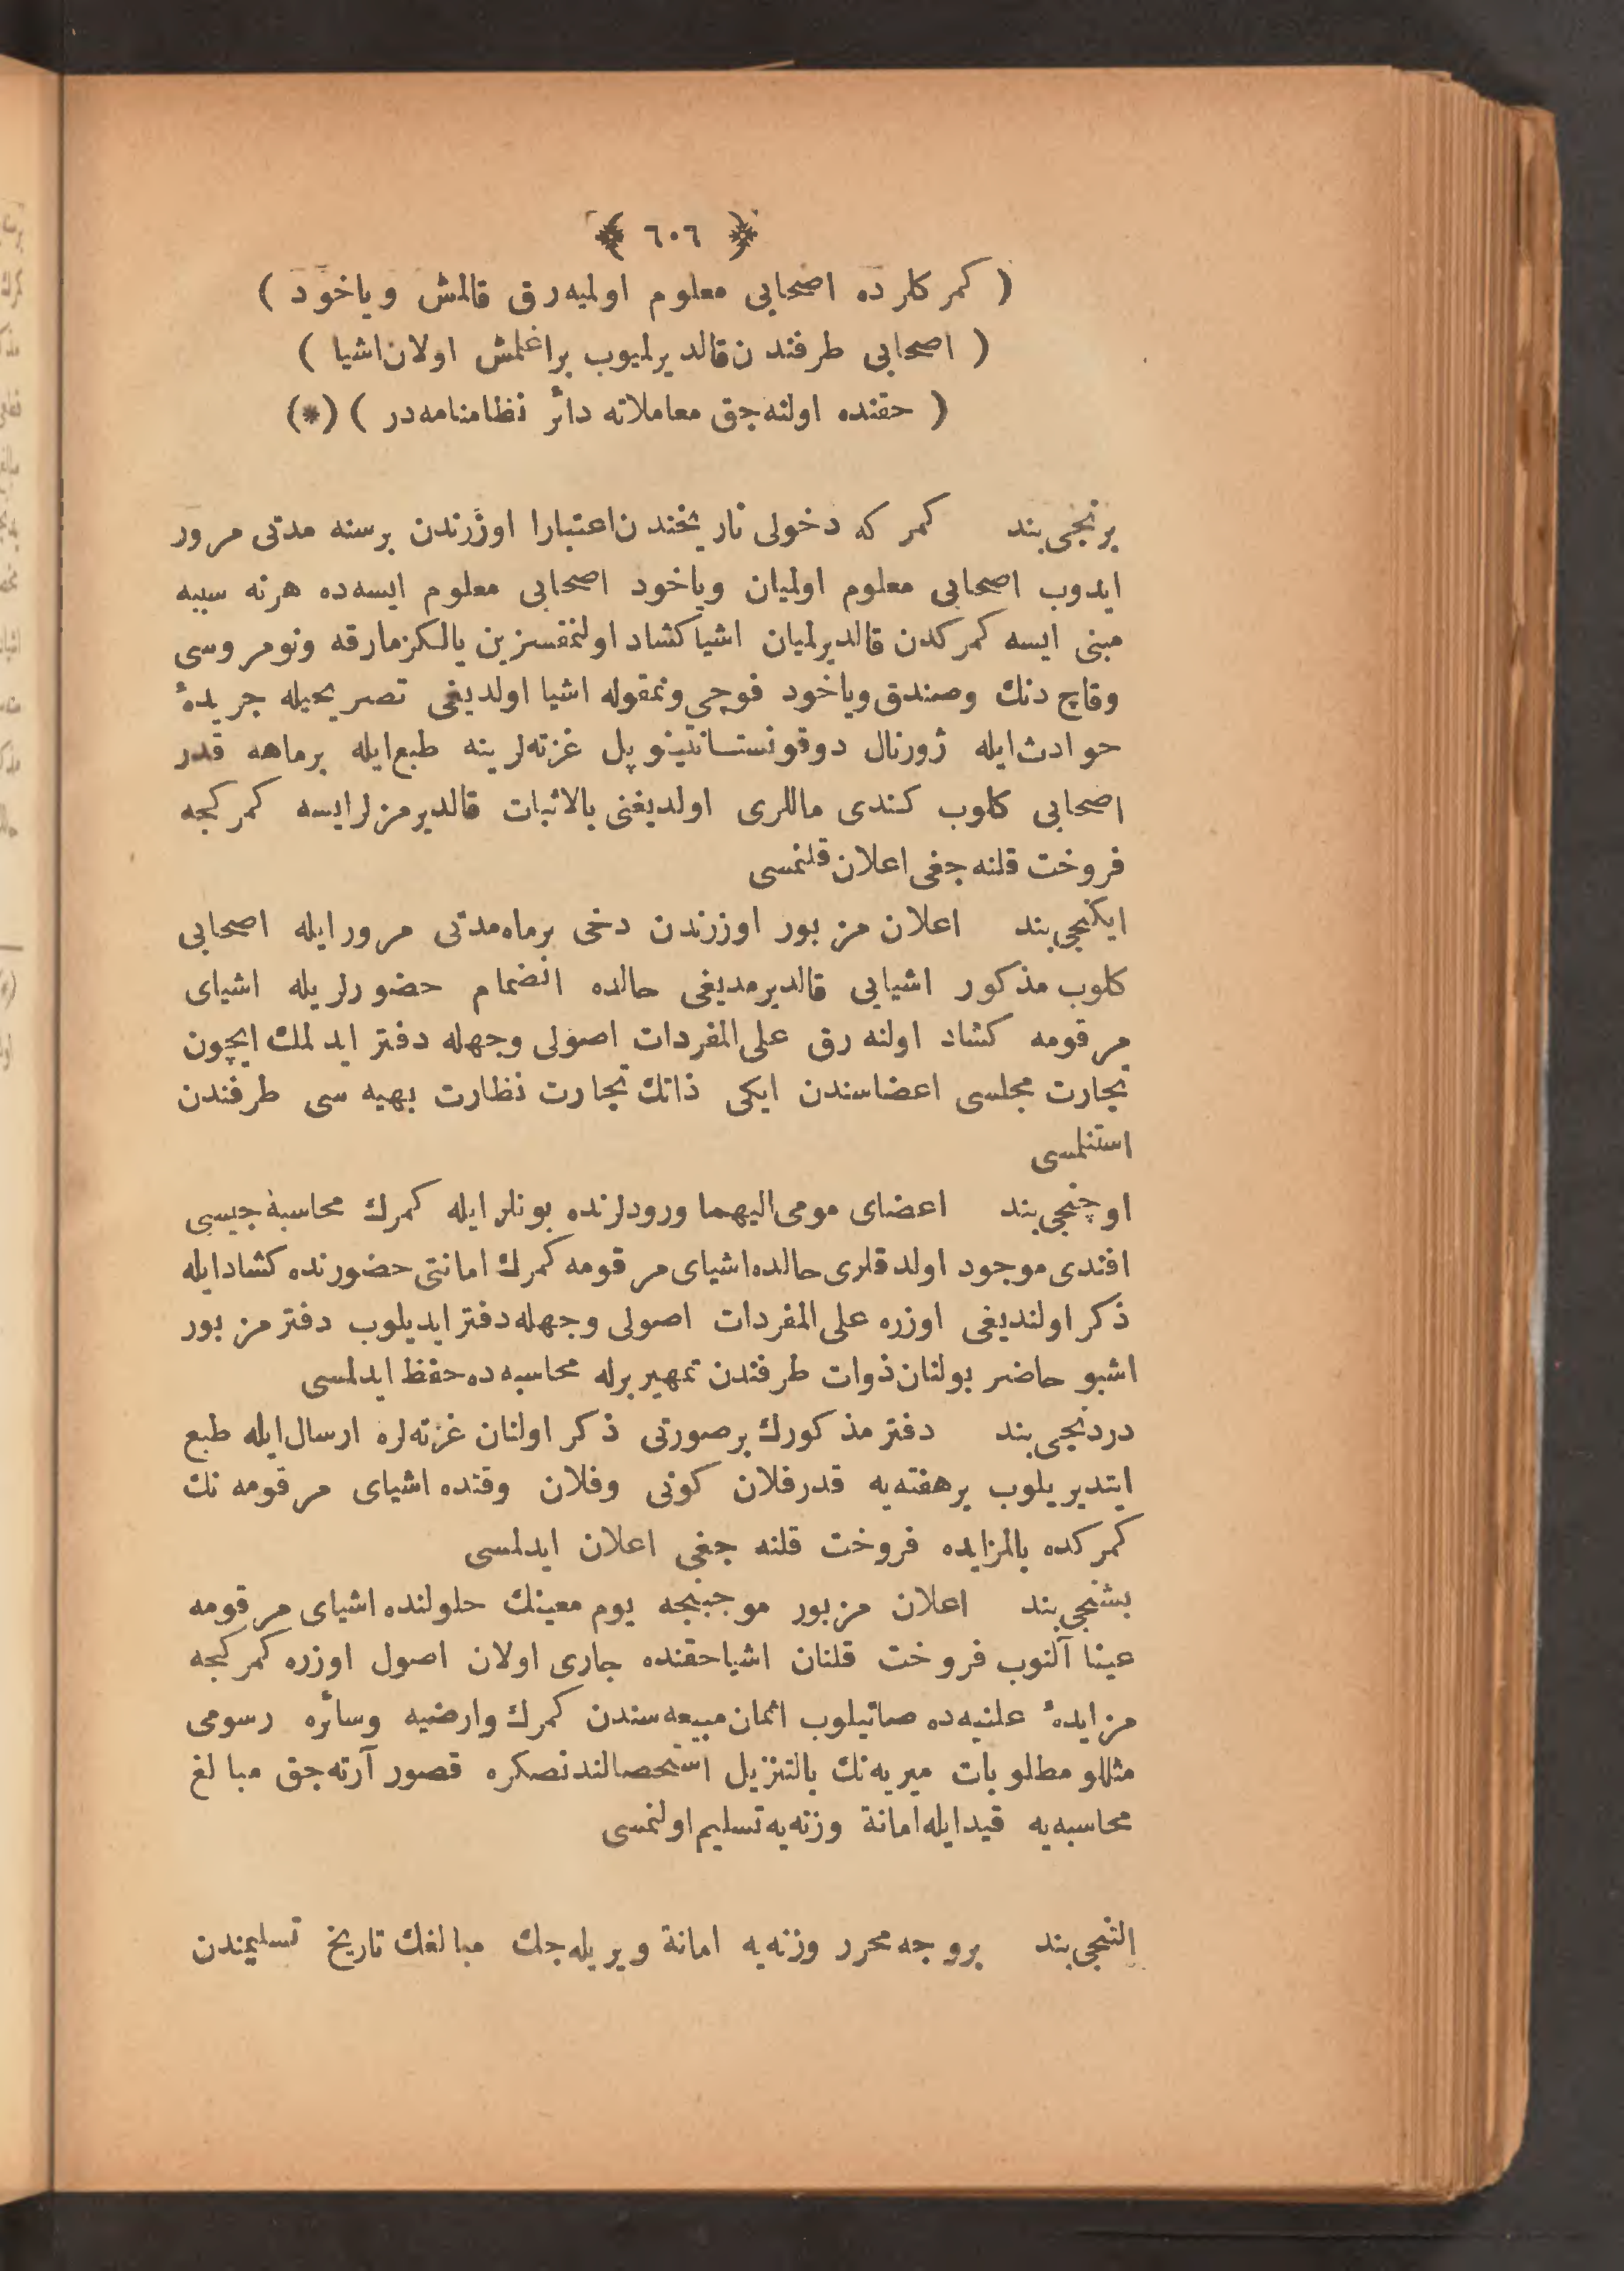 ﴿ ٦٠٦ ﴾
( كمركلرده اصحابی معلوم اولمیه‌رق قالمش ویاخود )
( اصحابی طرفندن قالدیرلمیوب براغلمش اولان اشیا )
( حقنده اولنه‌جق معاملاته دائر نظامنامه‌در ) (*)
برنجی بند كمركه دخولی تاریخندن اعتبارا اوزرندن برسنه مدتی مرور
ایدوب اصحابی معلوم اولمیان ویاخود اصحابی معلوم ایسه‌ده هرنه سببه
مبنی ایسه كمركدن قالدیرلمیان اشیا كشاد اولنمقسزین یالكز مارقه ونومروسی
وقاچ دنك وصندق ویاخود فوچی ونمقوله اشیا اولدیغی تصریحیله جریدۀ
حوادث ایله ژورنال دوقونستانتینوپل غزته‌لرینه طبع ایله برماهه قدر
اصحابی كلوب كندی ماللری اولدیغنی بالاثبات قالدیرمزلر ایسه كمركجه
فروخت قلنه‌جغی اعلان قلنمسی
ایكنجی بند اعلان مزبور اوزرندن دخی برماه مدتی مرور ایله اصحابی
كلوب مذكور اشیایی قالدیرمدیغی حالده انضمام حضورلریله اشیای
مرقومه كشاد اولنه‌رق علی المفردات اصولی وجهله دفتر ایدلمك ایچون
تجارت مجلسی اعضاسندن ایكی ذاتك تجارت نظارت بهیه‌سی طرفندن
استنلمسی
اوچنجی بند اعضای مومی‌الیهما ورودلرنده بونلر ایله كمرك محاسبه‌جیسی
افندی موجود اولدقلری حالده اشیای مرقومه كمرك امانتی حضورنده كشاد ایله
ذكر اولندیغی اوزره علی المفردات اصولی وجهله دفتر ایدیلوب دفتر مزبور
اشبو حاضر بولنان ذوات طرفندن تمهیر برله محاسبه‌ده حفظ ایدلمسی
دردنجی بند دفتر مذكورك برصورتی ذكر اولنان غزته‌لره ارسال ایله طبع
ایتدیریلوب برهفته‌یه قدر فلان كونی وفلان وقتده اشیای مرقومه‌نك
كمركده بالمزایده فروخت قلنه‌جغی اعلان ایدلمسی
بشنجی بند اعلان مزبور موجبنجه یوم معینك حلولنده اشیای مرقومه
عینا آلنوب فروخت قلنان اشیا حقنده جاری اولان اصول اوزره كمركجه
مزایدۀ علنیه‌ده صاتیلوب اثمان مبیعه‌سندن كمرك وارضیه وسائره رسومی
مثللو مطلوبات میریه‌نك بالتنزیل استحصالندنصكره قصور آرته‌جق مبالغ
محاسبه‌یه قید ایله امانة وزنه‌یه تسلیم اولنمسی
التنجی بند بروجه محرر وزنه‌یه امانة ویریله‌جك مبالغك تاریخ تسلیمندن